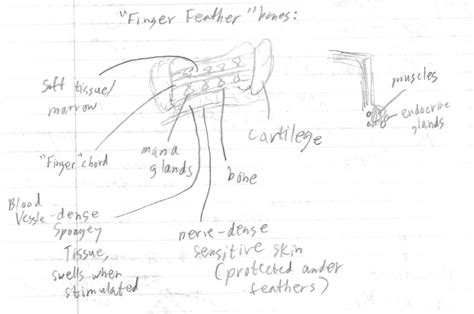 "Finger Feather" bones:
soft tissue/
marrow
"Finger" chord
mana
glands
bone
cartilege
muscles
endocrine
glands
Blood
Vessle-dense
Spongey
Tissue,
swells when
stimulated
nerve-dense
sensitive skin
(protected under
feathers)